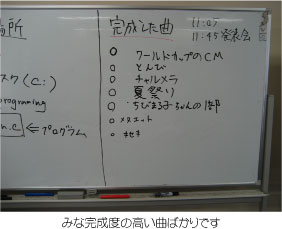 場所
スク(C:)
programing
n.c ⇐プログラム
完成した曲
11:05
11:45 発表会
○ ワールドカップのCM
○ とんび
○ チャルメラ
○ 夏祭り
○ ちびまる子ちゃんの
○ メヌエット
○
みな完成度の高い曲ばかりです